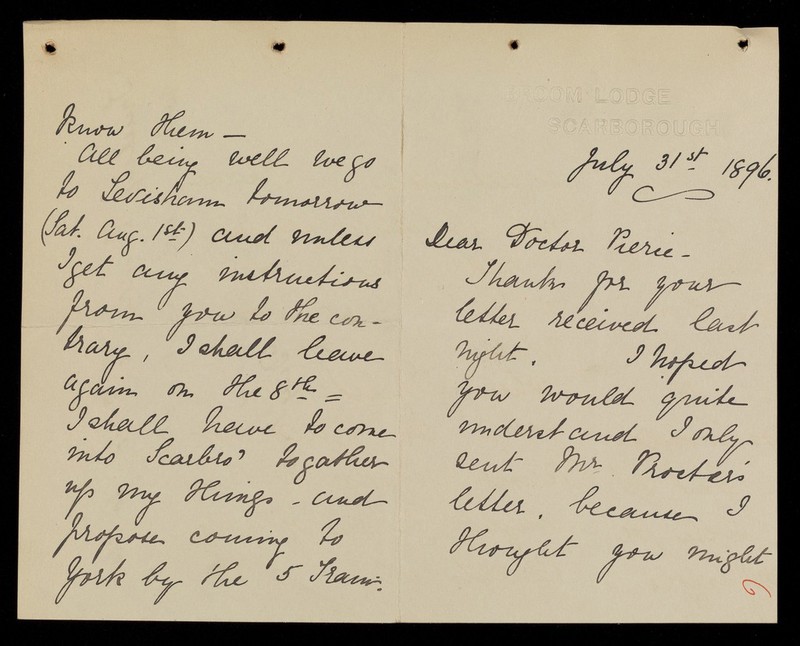 BROOM LODGE
SCARBOROUGH
July 31st 1896.
Dear Doctor Pierce -
Thanks for your
letter received last
night. I hoped
you would quite
understand I only
sent Mr. Procter's
letter, because I
thought you might
6
know them -
All being well we go
to Levisham tomorrow
(Sat. Aug. 1st) and unless
I get any instructions
from you to the con-
trary, I shall leave
again on the 8th =
I shall have to come
into Scarbro' to gather
up my things - and
propose coming to
York by the 5 Train.